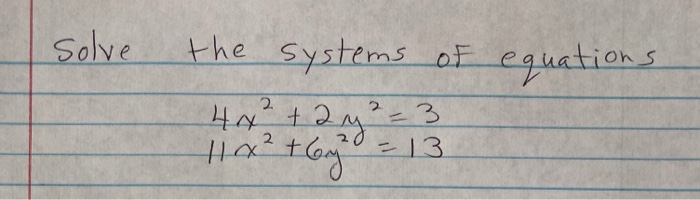 Solve the systems of equations
4x² + 2y² = 3
11x² + 6y² = 13